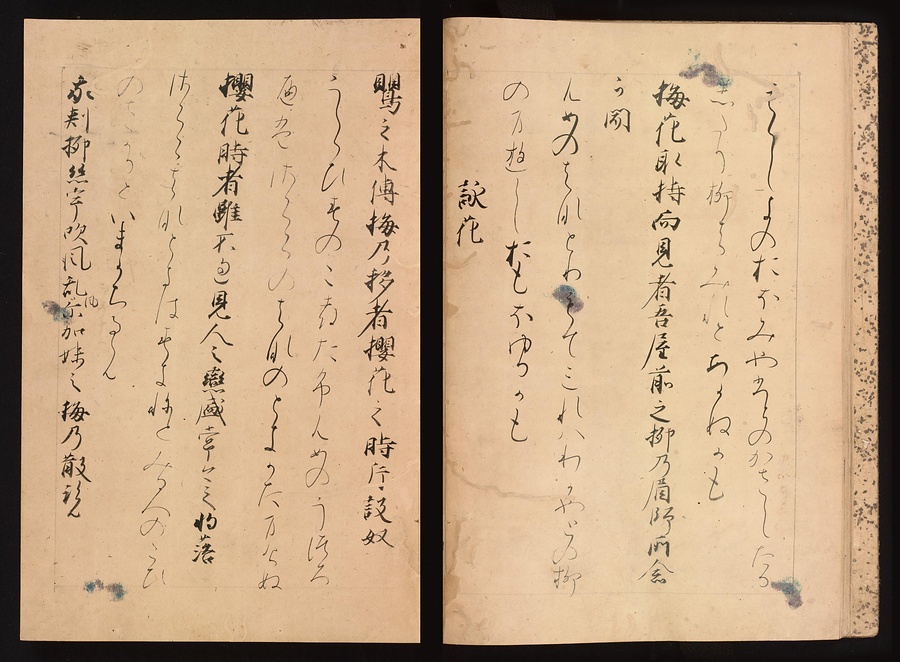 もゝしきのおほみや人のかさしたる
したり柳はみれとあかぬかも
梅花取持而見者吾屋前之柳乃眉師所念
可聞
むめのはなとりもてみれはわかやとの柳
のまゆしおもほゆるかも
詠花
鸎之木傳梅乃移者櫻花之時片設奴
うくひすのこつたふむめのうつろ
へはさくらのはなのときかたまけぬ
櫻花時者雖不過見人之戀盛常今之将落
さくらはなときはすきねとみる人のこひ
のさかりといまかちるらん
我刺柳絲乎吹風乱尓加妹之梅乃散覧